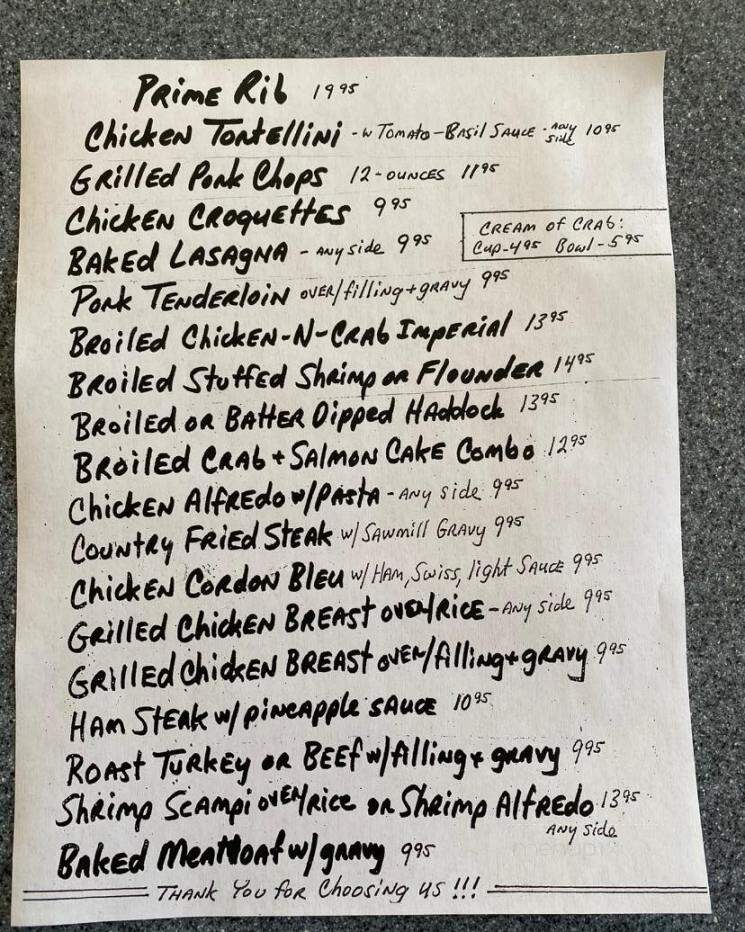 Prime Rib 19 95
Chicken Tortellini - w Tomato-Basil Sauce - any side 10 95
Grilled Pork Chops 12-ounces 11 95
Chicken Croquettes 9 95
Cream of Crab:
Cup-4 95 Bowl-5 95
Baked Lasagna - any side 9 95
Pork Tenderloin over/filling+gravy 9 95
Broiled Chicken-N-Crab Imperial 13 95
Broiled Stuffed Shrimp or Flounder 14 95
Broiled or Batter Dipped Haddock 13 95
Broiled Crab + Salmon Cake Combo 12 95
Chicken Alfredo w/Pasta - any side 9 95
Country Fried Steak w/ Sawmill Gravy 9 95
Chicken Cordon Bleu w/ Ham, Swiss, light Sauce 9 95
Grilled Chicken Breast over/rice - any side 9 95
Grilled Chicken Breast over/filling+gravy 9 95
Ham Steak w/ pineapple sauce 10 95
Roast Turkey or Beef w/filling + gravy 9 95
Shrimp Scampi over/rice or Shrimp Alfredo 13 95
any side
Baked Meatloaf w/gravy 9 95
Thank You for Choosing us !!!